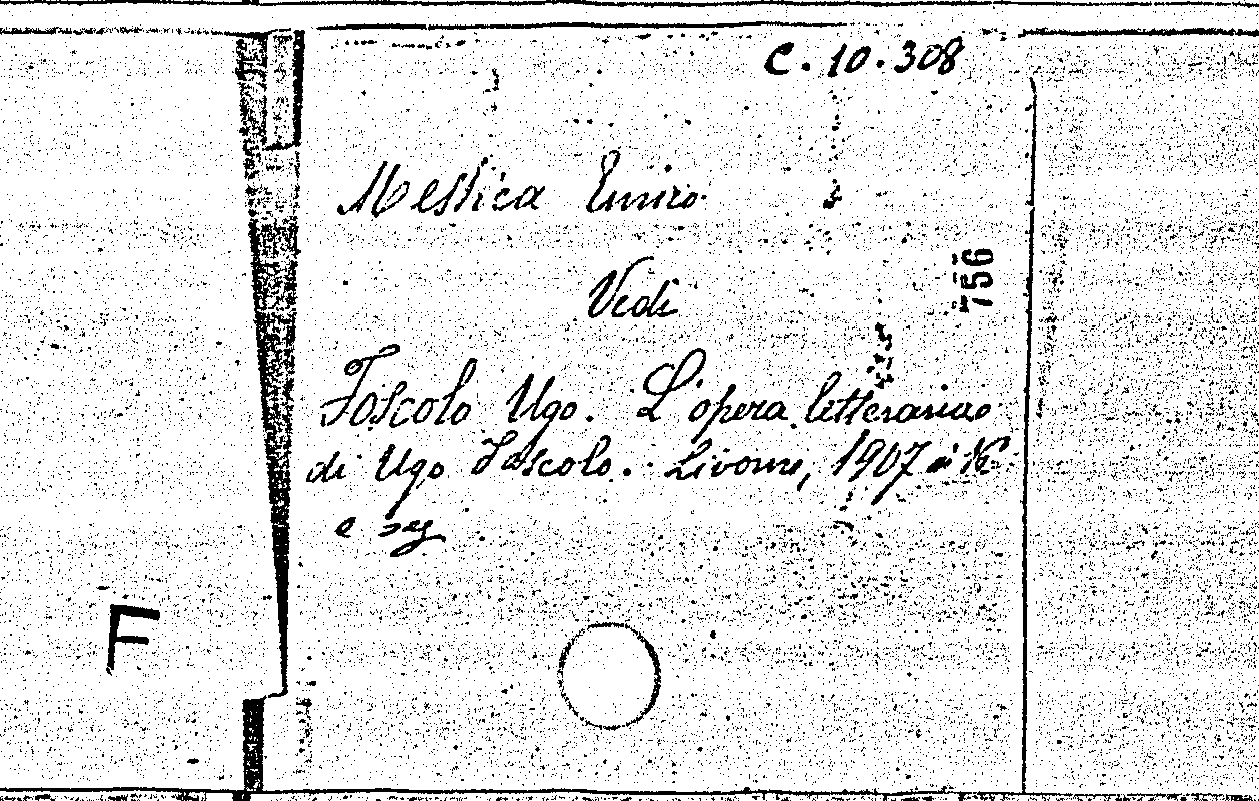 C. 10. 308
Messica Enrico
Vedi
756
Foscolo Ugo. L'opera letteraria
di Ugo Foscolo. Livorno, 1907 in 16°
e seg.
F